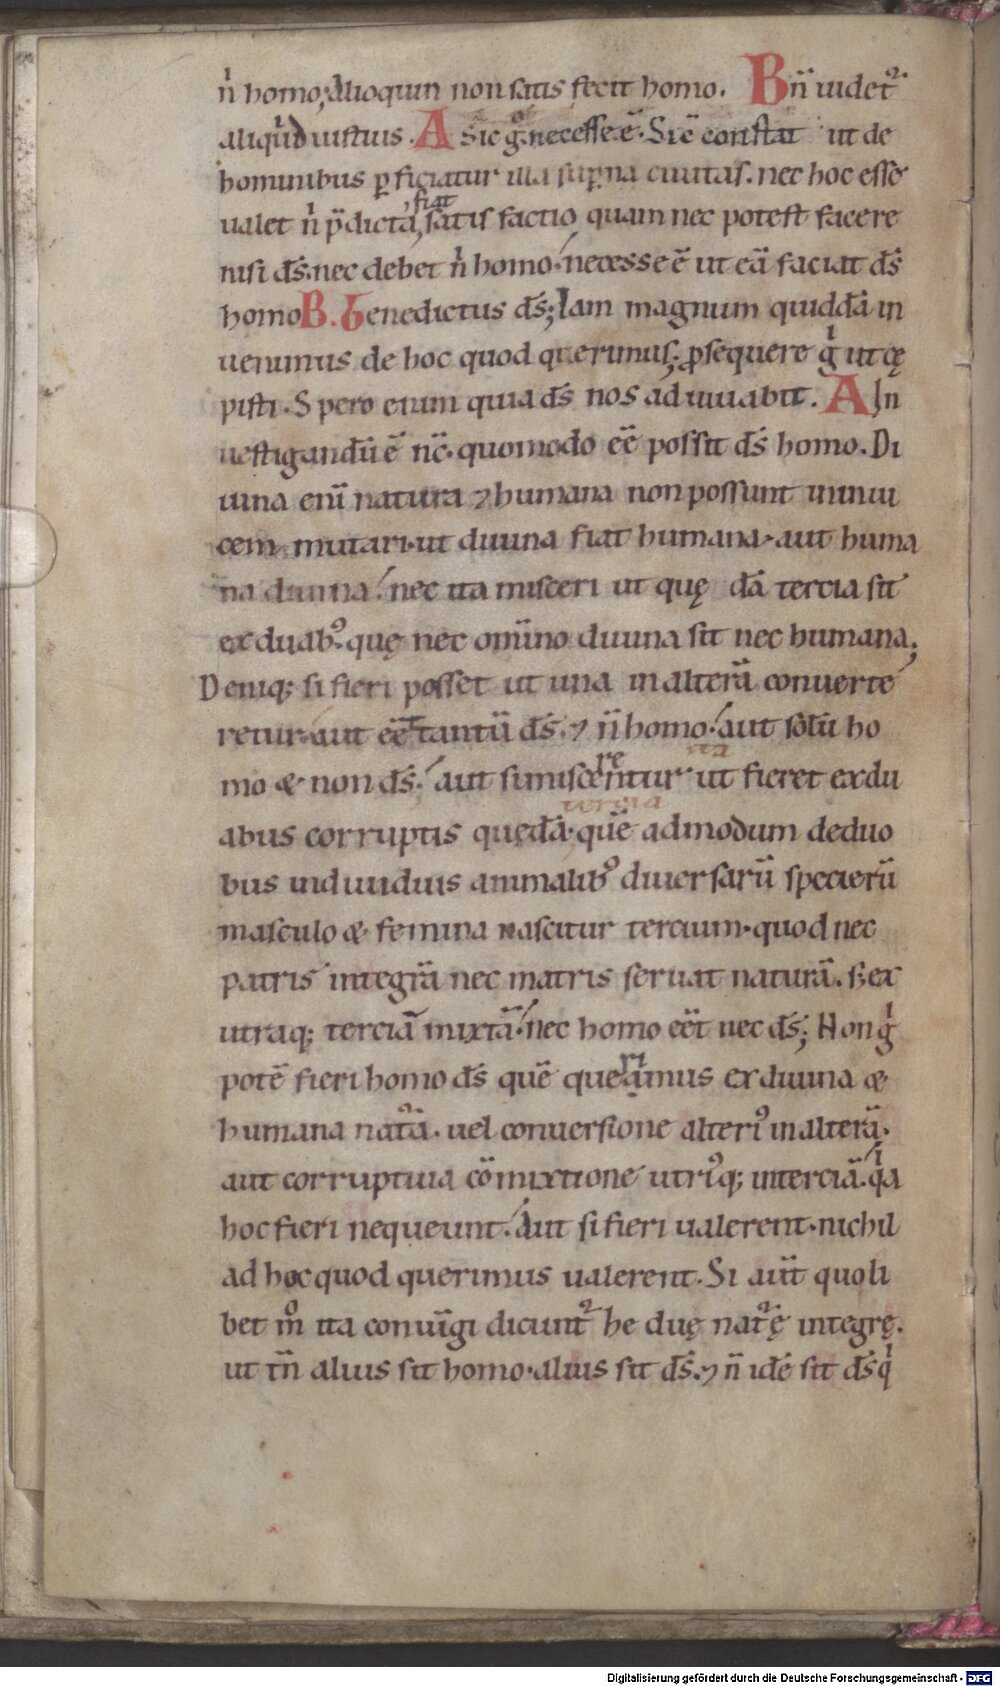 n̍ homo; Alioquin non satis fecit homo. B n̄ uidet᷑
aliqͥd iustius. A Sic gͦ necesse ē. Sic̄ constat ut de
hominibus ꝑficiatur illa suꝑna ciuitas. nec hoc esse
ualet n̍ p̄dicta fiat satis factio quam nec potest facere
nisi d̄s. nec debet n̍ homo. necesse ē ut eā faciat d̄s
homo B. Benedictus d̄s; Iam magnum quiddā in
uenimus de hoc quod querimus; ꝓsequere gͥ ut cę
pisti. Spero enim quia d̄s nos adiuuabit. A In
uestigandū ē nc̄. quomodo eē possit d̄s homo. Di
uina enī natura ⁊ humana non possunt inuui
cem mutari. ut diuina fiat humana. aut huma
na diuina. nec ita misceri ut quę dā tercia sit
ex duabꝰ. quę nec omīno diuina sit nec humana;
Deniq; si fieri posset ut una in alterā conuerte
retur. aut eēt tantū d̄s. ⁊ n̄ homo. aut solū ho
mo & non d̄s. aut si miscerentur ita ut fieret ex du
abus corruptis quędā tercia. quē admodum de duo
bus indiuiduis animalibꝰ diuersarū specierū
masculo & femina nascitur tercium. quod nec
patris integrā nec matris seruat naturā. s; ex
utraq; terciā mixtā. nec homo eēt nec d̄s; Non gͥ
potē fieri homo d̄s quē querimus ex diuina &
humana nat᷑ā. uel conuersione alteriꝰ in alterā.
aut corruptiua cōmixtione utriꝰq; in terciā. qͥa
hoc fieri nequeunt. Aut si fieri ualerent. nichil
ad hoc quod querimus ualerent. Si aūt quoli
bet mͦ ita coniūgi dicunt᷑ he duę nat᷑ę integrę.
ut tn̄ alius sit homo. alius sit d̄s. ⁊ n̄ idē sit d̄s qͥ
Digitalisierung gefördert durch die Deutsche Forschungsgemeinschaft - DFG